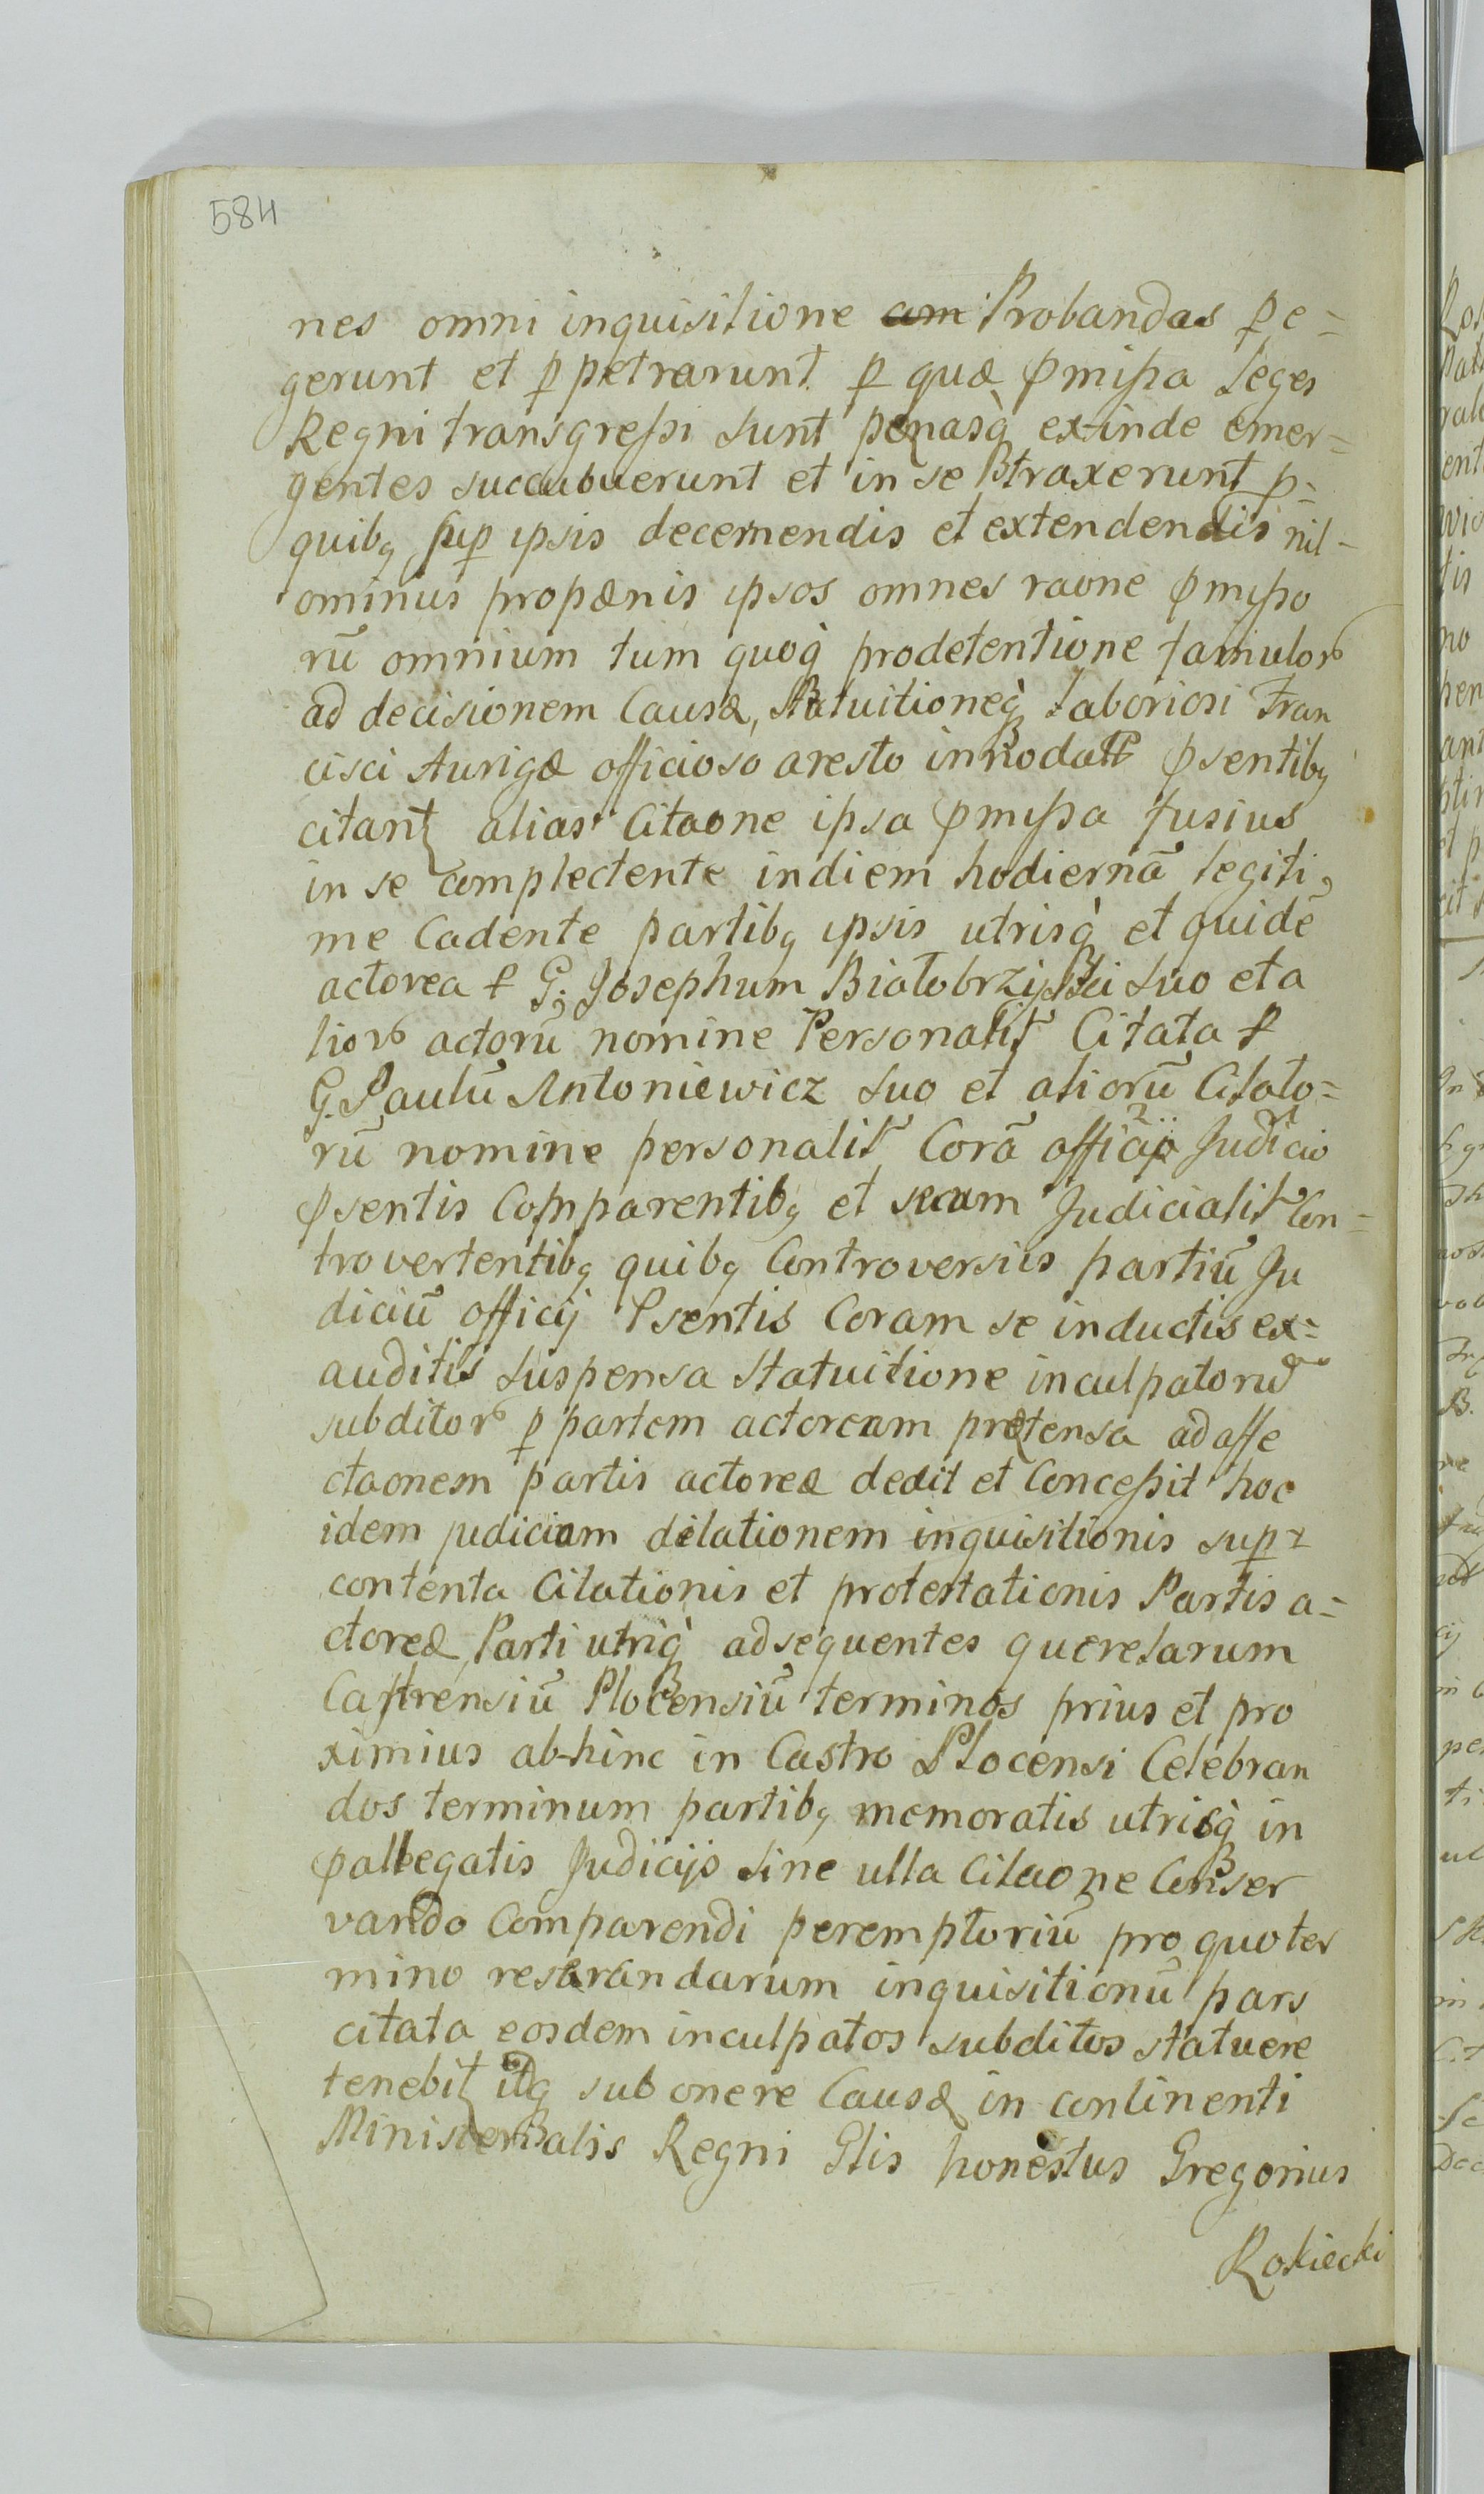 584
nes omni inquisitione Probandas pe=
gerunt et ppetrarunt p quæ pmissa Leges
Regni transgressi sunt penasq̀ ex inde emer=
gentes succubuerunt et in se traxerunt p
quibq sup ipsis decernendis et extendendis nil-
ominus propænis ipsos omnes raone pmisso
rũ omnium tum quoq̀ prodetentione famulor
ad decisionem Causæ, Statuitioneq̀ Laboriosi Fran
cisci Aurigæ officioso aresto innodati psentibq
citant alias Citaone ipsa pmissa fusius
in se complectente indiem hodiernã legiti,
me Cadente partibq ipsis utrisq̀ et quidẽ
actorea p G: Josephum Białobrzyski suo et a
lior actorũ nomine Personalit̃ Citata p
G. Paulũ Antoniewicz suo et aliorũ Citato=
rũ nomine personalit̃ Corã officio Judicio
psentis Comparentibq et secum Judicialit̃ Con=
trovertentibq quibq Controversiis partiũ Ju
diciũ officij Psentis Coram se inductis ex=
auditis suspensa Statuitione inculpatorũ
subditor p partem actoream prætensa ad affe
ctaonem partis actoreæ dedit et Concessit hoc
idem judicium dilationem inquisitionis sup
contenta Citationis et protestationis Partis a=
ctoreæ, Parti utriq̀ adsequentes querelarum
Castrensiũ Plocensiũ terminos prius et pro
ximius ab-hinc in Castro Plocensi Celebran
dos terminum partibq memoratis utrisq̀ in
pallegatis Judicijs sine ulla Citaone Conser
vando Comparendi peremptoriũ pro quo ter
mino reserandarum inquisitionũ pars
citata eosdem inculpatos subditos statuere
tenebit idq sub onere Causæ in continenti
Ministerialis Regni Glis honestus Gregorius
Rokiecki